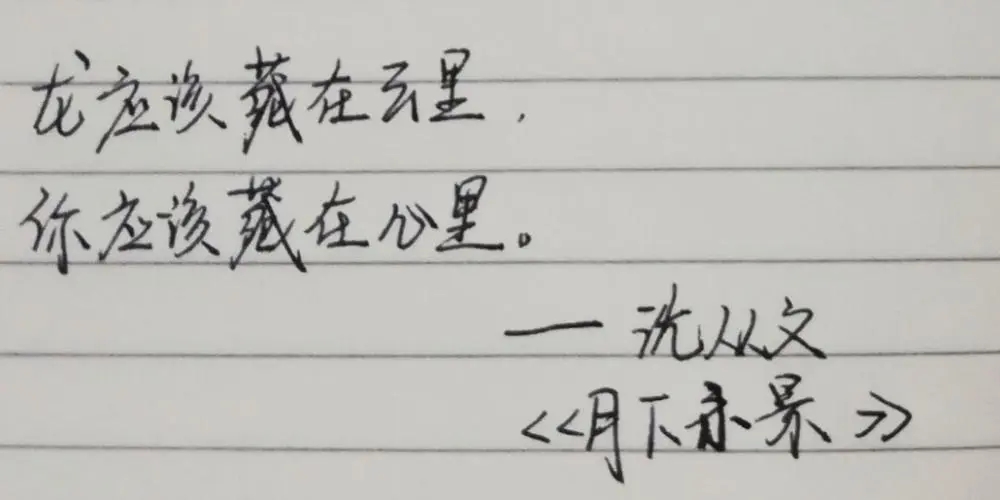 龙应该藏在云里，
你应该藏在心里。
——沈从文
<<月下小景>>